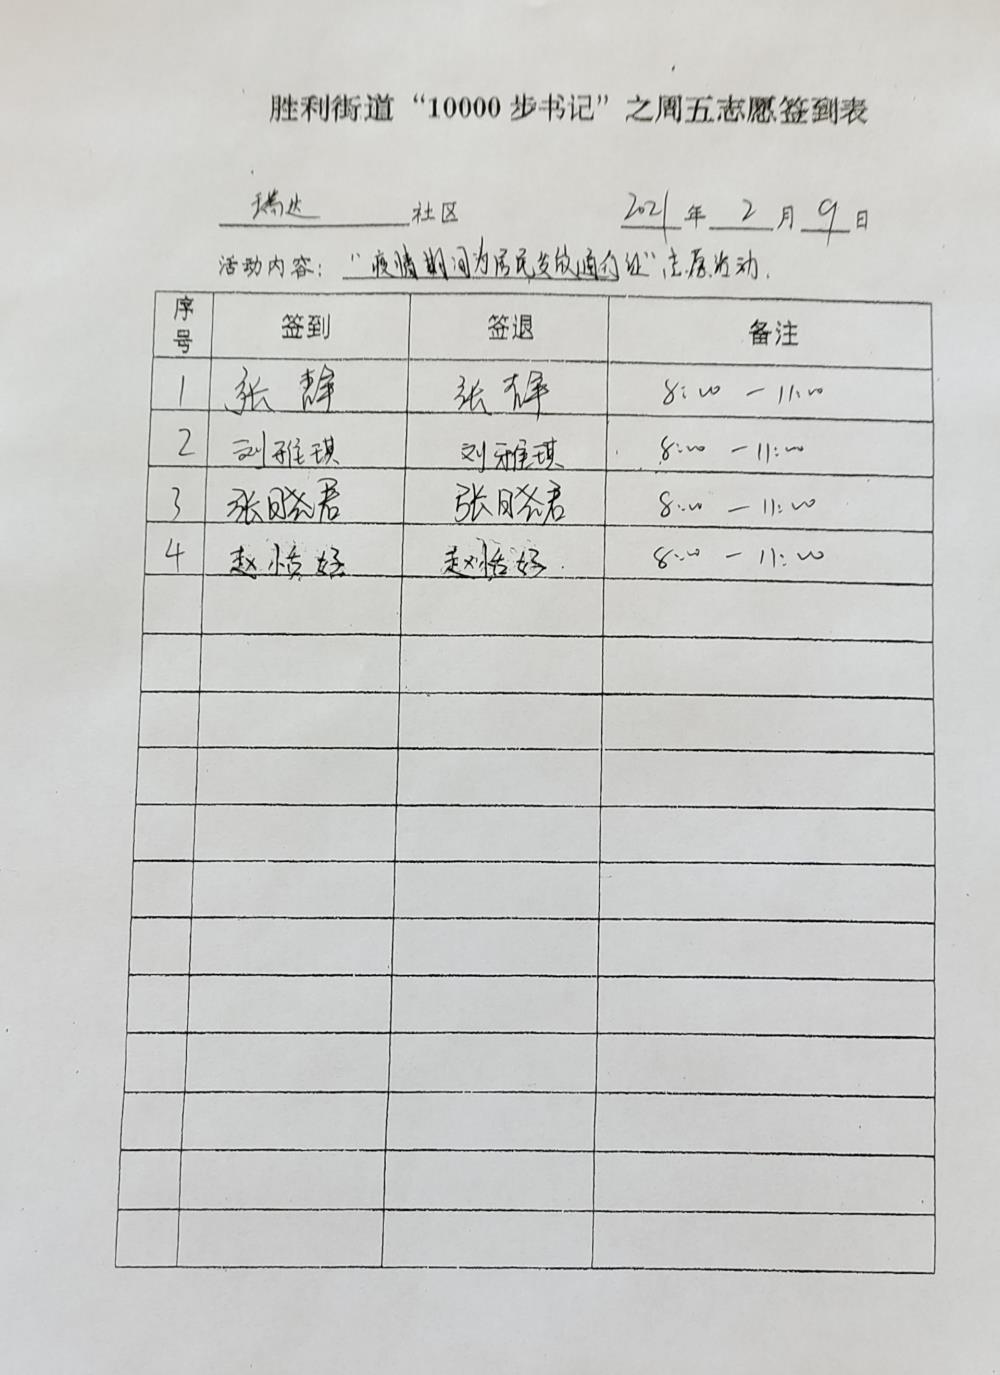 胜利街道“10000步书记”之周五志愿签到表
瑞达 社区 2021 年 2 月 9 日
活动内容：“疫情期间为居民发放通行证”志愿活动.
序号 签到 签退 备注
1 张静 张静 8:00 — 11:00
2 刘雅琪 刘雅琪 8:00 — 11:00
3 张晓君 张晓君 8:00 — 11:00
4 赵恬好 赵恬好 8:00 — 11:00